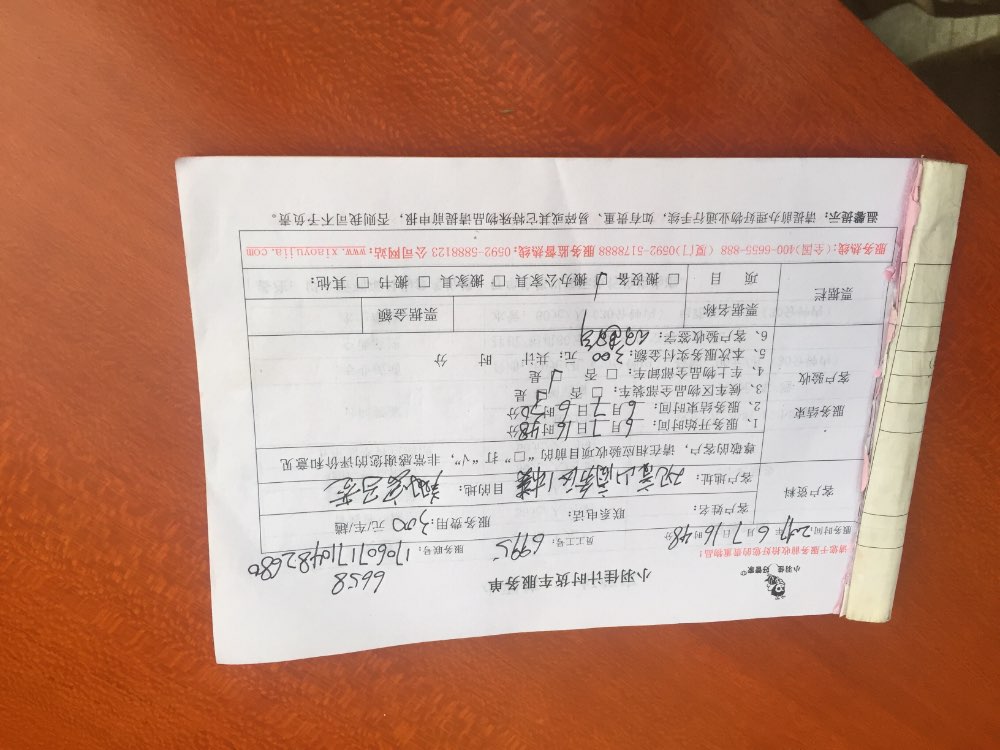 小羽佳 好管家
小羽佳计时货车服务单
6658
请您于服务前收拾好您的贵重物品！
服务时间: 2017年 6月 7日 16时 48分 员工工号: 6995 服务联号: 170607170482680
客户资料
客户姓名: 联系电话: 服务费用: 300 元/车/趟
客户地址: 目的地:
服务结束
客户验收
尊敬的客户，请在相应验收项目前的“□”打“√”，非常感谢您的评价和意见
1、服务开始时间: 6月 7日 16时 48分
2、服务结束时间: 6月 7日 6时 30分
3、候车区物品全部装车: □ 否 □ 是
4、车上物品全部卸车: □ 否 □ 是
5、本次服务实付金额: 300 元; 共计 时 分
6、客户验收签字:
票据栏
票据名称 票据金额
项 目 □ 搬设备 □ 搬办公家具 □ 搬家具 □ 搬书 □ 其他:
服务热线:(全国)400-6655-888 (厦门)0592-5178888 服务监督热线:0592-5888122 公司网站: www.xiaoyujia.com
温馨提示: 请提前办理好物业通行手续，如有贵重、易碎或其它特殊物品请提前申报，否则我司不予负责。